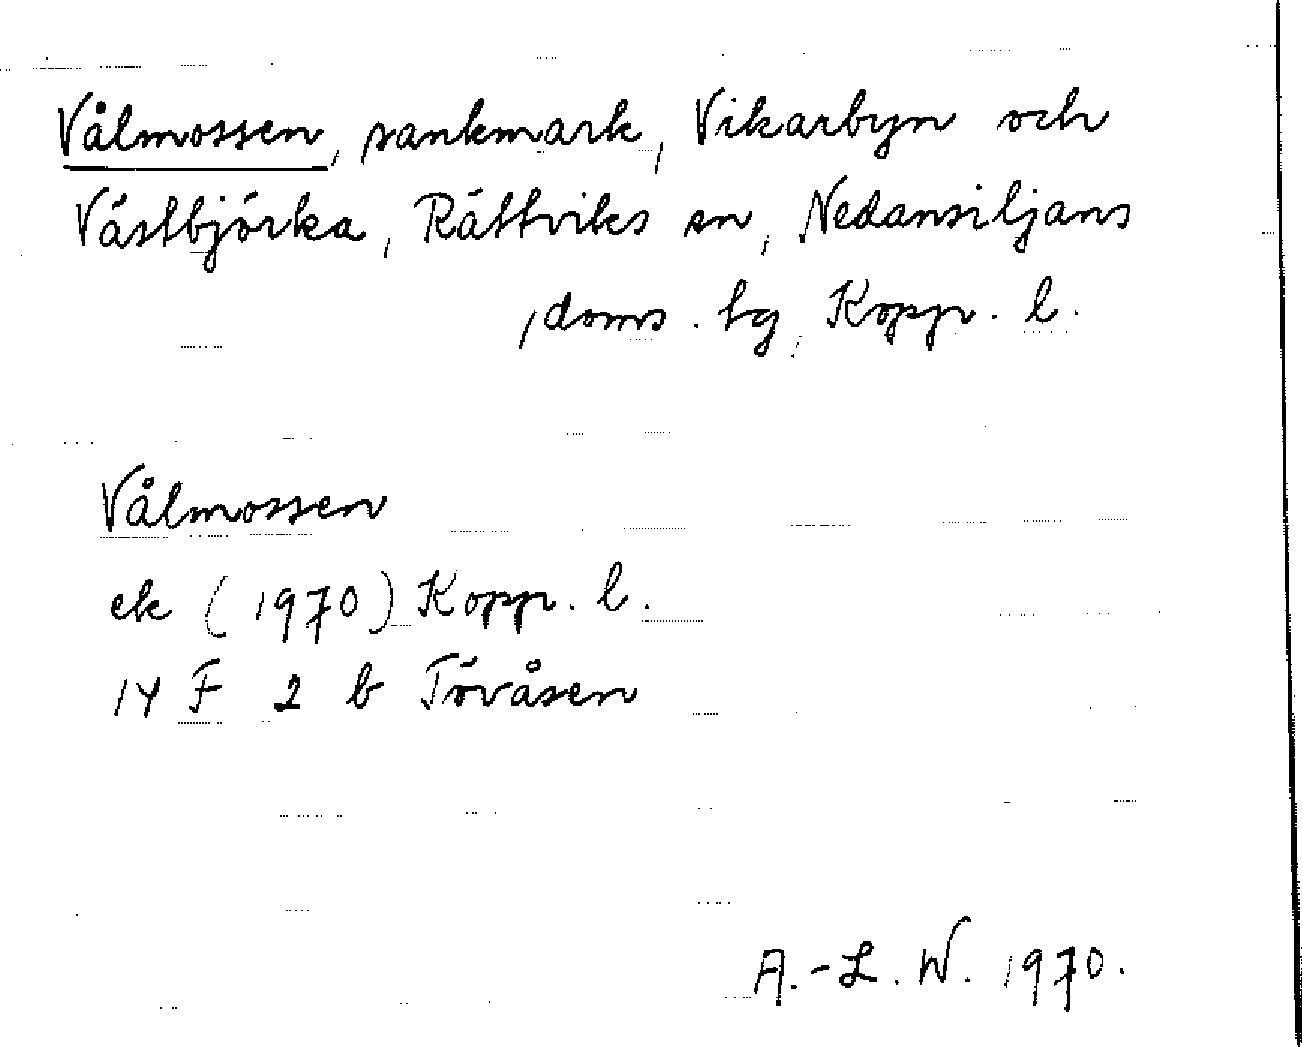 Vålmossen, sankmark, Vikarbyn och
Västbjörka, Rättviks sn, Nedansiljans
doms. tg, Kopp. l.
Vålmossen
ek (1970) Kopp. l.
14 F 2 b Tövåsen
A.-L. W. 1970.